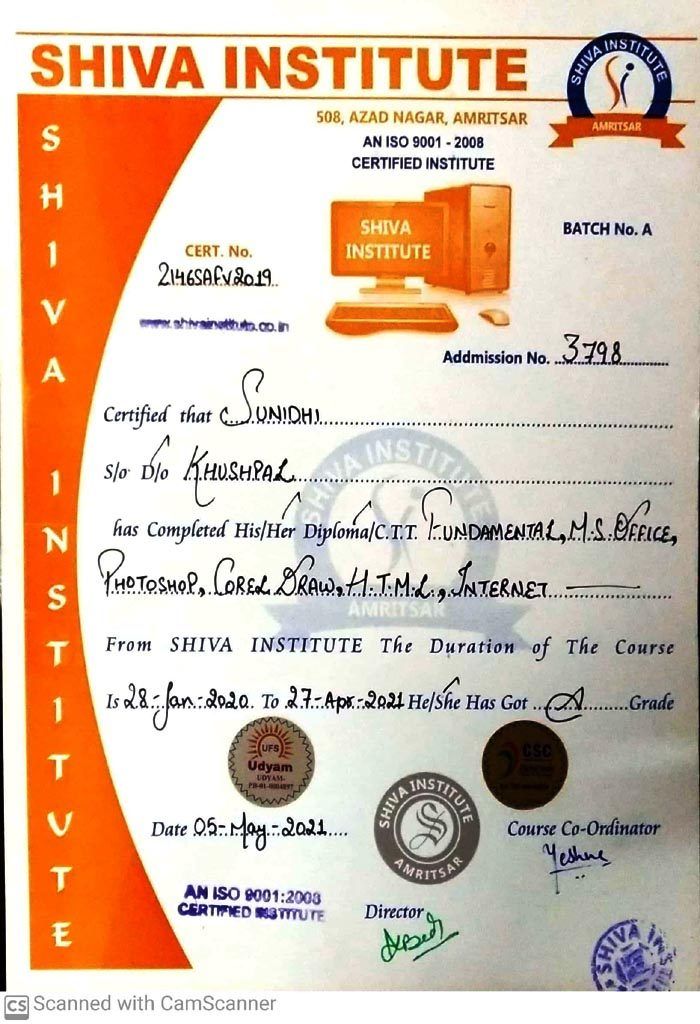 SHIVA INSTITUTE
SHIVA INSTITUTE
AMRITSAR
508, AZAD NAGAR, AMRITSAR
AN ISO 9001 - 2008
CERTIFIED INSTITUTE
SHIVA INSTITUTE
SHIVA
INSTITUTE
BATCH No. A
CERT. No.
2146SAFV2019
www.shivainstitute.co.in
Addmission No. 3798
Certified that SUNIDHI
S/o D/o KHUSHPAL
SHIVA INSTITUTE
has Completed His/Her Diploma/C.T.T. FUNDAMENTAL, M.S. OFFICE,
PHOTOSHOP, COREL DRAW, H.T.M.L, INTERNET
AMRITSAR
From SHIVA INSTITUTE The Duration of The Course
Is 28-Jan-2020 To 27-Apr-2021 He/She Has Got A Grade
UFS
Udyam
UDYAM-
CSC
SHIVA INSTITUTE
AMRITSAR
Date 05-May-2021
Course Co-Ordinator
AN ISO 9001:2008
CERTIFIED INSTITUTE
Director
SHIVA INS
CS Scanned with CamScanner